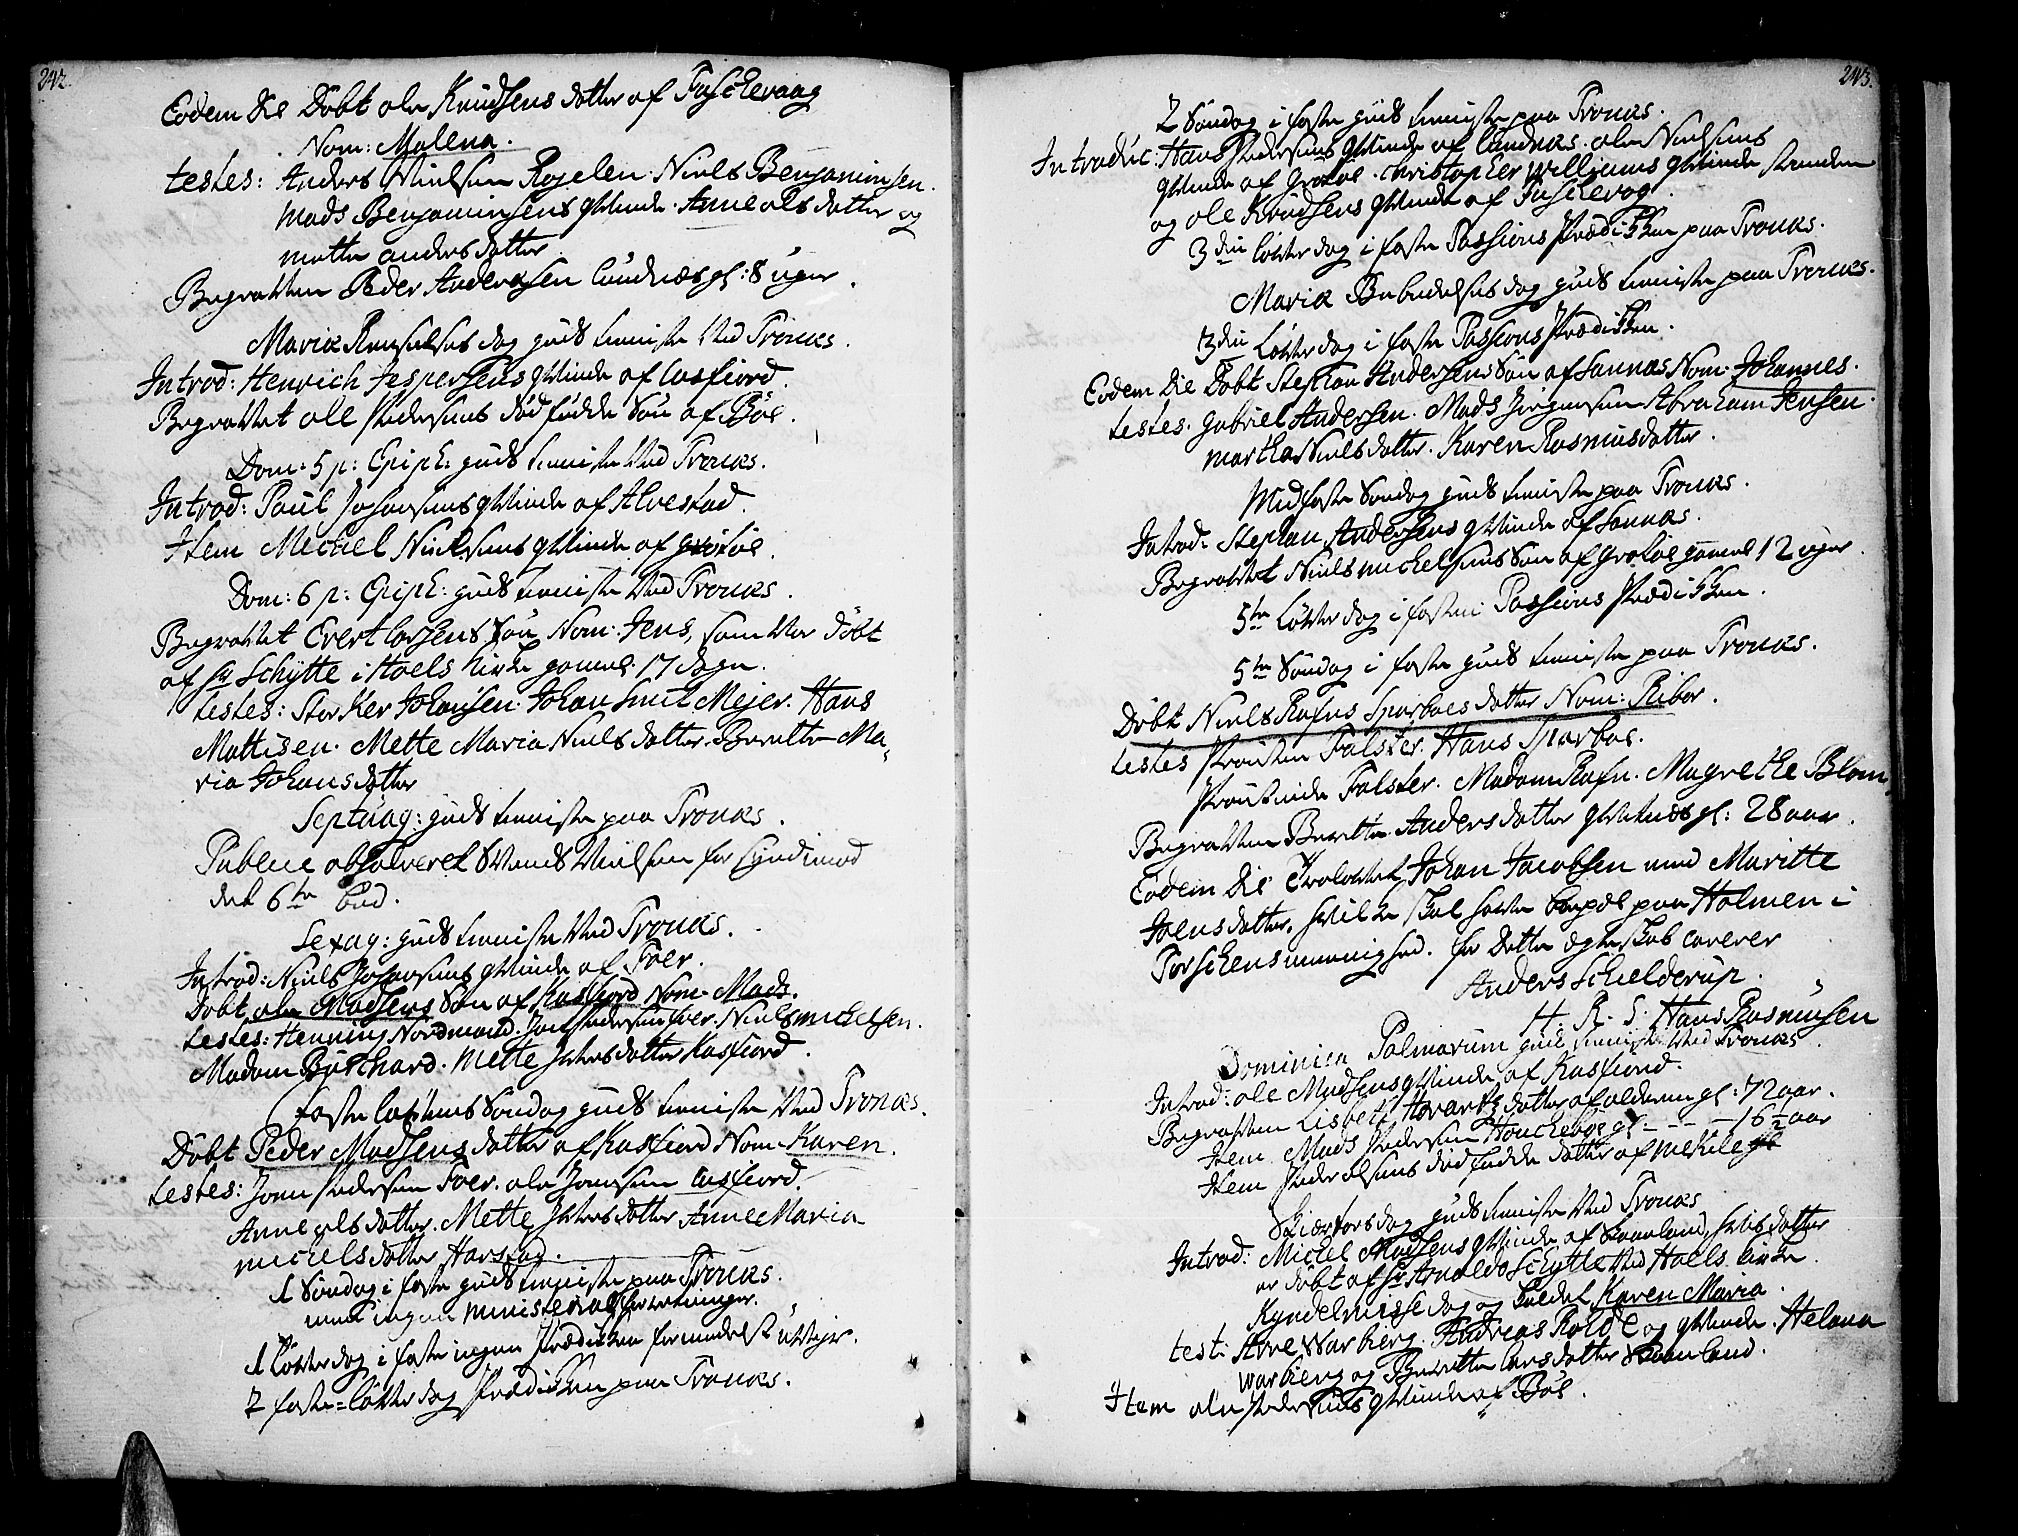 242.
Eodem die Döbt ole Knudsens datter af Fuschevaag
Nom: Malena.
testes: Anders Nielsen Rogelen. Niels Benjaminsen.
Mads Benjaminsens qvinde. Anne ols datter og
mette anders datter
Begravten Peder Andersen Sundnæs gl: 8 uger.
Mariæ Renselses dag guds tieniste ved Tronæs.
Introd: Henrich Jespersens qvinde af Casfiord.
Begravet ole Pedersens dödfödde Sön af Böe.
Dom: 5 p: Epiph: guds tieniste ved Tronæs.
Introd: Paul Johansens qvinde af Alvestad.
Item Michel Nielsens qvinde af grötöe.
Dom: 6 p: Epiph: guds tieniste ved Tronæs.
Begravet Evert larsens Sön Nom: Jens, som var döbt
af Hr Schytte i Hoels kirke gamel 17 dage.
testes: Storker Johansen. Johan Smit Mejer. Hans
Mattisen. Mette Maria Niels datter. Berette Ma-
ria Johans datter
Septuag: guds tieniste paa Tronæs.
Publice absolveret Svends Nielsen for Synd imod
det 6te bud.
Sexag: guds tieniste ved Tronæs.
Introd: Niels Johansens qvinde af Foer.
Döbt ole Madsens Sön af Kasfiord Nom. Mads.
testes: Henning Nordmand. Jon Pedersen Foer. Niels michelsen.
Madam Burchard. Mette Peders datter Kasfiord.
faste lavens Söndag guds tieniste ved Tronæs.
Döbt Peder Madsens datter af Kasfiord Nom. Karen.
testes: Jonn Pedersen Foer. ole Jonsen Casfiord.
Anne ols datter. Mette Peders datter Anne Maria
michels datter Harstad.
1 Söndag i faste guds tieniste paa Tronæs.
men ingen ministerial forretninger.
1 löverdag i faste ingen Prædiken formedelst uveyr.
2 faste=löverdag Prædiken paa Tronæs.
243.
2 Söndag i faste guds tieniste paa Tronæs.
Introduc: Hans Pedersens qvinde af Sandnæs. ole Nielsens
qvinde af grötöe. Christopher Williums qvinde Stranden
og ole Knudsens qvinde af Fuschevog.
3die löverdag i faste Passions Prædiken paa Tronæs.
Mariæ Bebudelses dag guds tieniste paa Tronæs.
3die Löverdag i faste Passions Prædiken.
Eodem die Döbt Stephan Andersens Sön af Sannæs Nom. Johannes.
testes. gabriel Andersen. Mads Jörgensen Abraham Jensen.
martha Niels datter. Karen Rasmus datter.
Midfaste Söndag guds tieniste paa Tronæs.
Introd: Stephan Andersens qvinde af Sannæs.
Begravet Niels michelsens Sön af Grötöe gamel 12 uger.
5te Löverdag i fasten Passions Prædiken.
5te Söndag i faste guds tieniste paa Tronæs.
Döbt Niels Rafns Sparboes datter Nom: Ribor.
testes Provsten Falster. Hans Sparboe.
Provstinde Falster. Madam Rafn. Magrethe Blom.
Begravten Berette Anders datter qvitnæs gl: 28 aar.
Eodem die Trolovet Johan Jacobsen med Maritte
Joens datter, hvilke skal have bopæl paa Holmen i
Torschens menighed. for dette ægteskab caverer
Anders Schielderup.
H. R. S. Hans Rasmusen
Dominica Palmarum guds tieniste ved Tronæs.
Introd: ole Madsens qvinde af Kasfiord.
Begravten Lisbeth Hovarts datter af alderen gl: 72 aar.
Item. Mads Pedersen Houcheböe gl - - - - 16 1/2 aar
Item Peder olsens dödfödde datter af Mekile
Skiærtorsdag guds tieniste ved Tronæs
Introd: Michel Madsens qvinde af Vaarland, hvis datter
er döbt af Hr Arnoldo Schytte ved Hoels kirke
Kyndelmisse dag og kaldet Karen Maria.
test: Arve Warberg. Andreas Rolde og qvinde. Helena
Warberg og Berette lars datter Vaarland.
Item ole Pedersens qvinde af Böe.